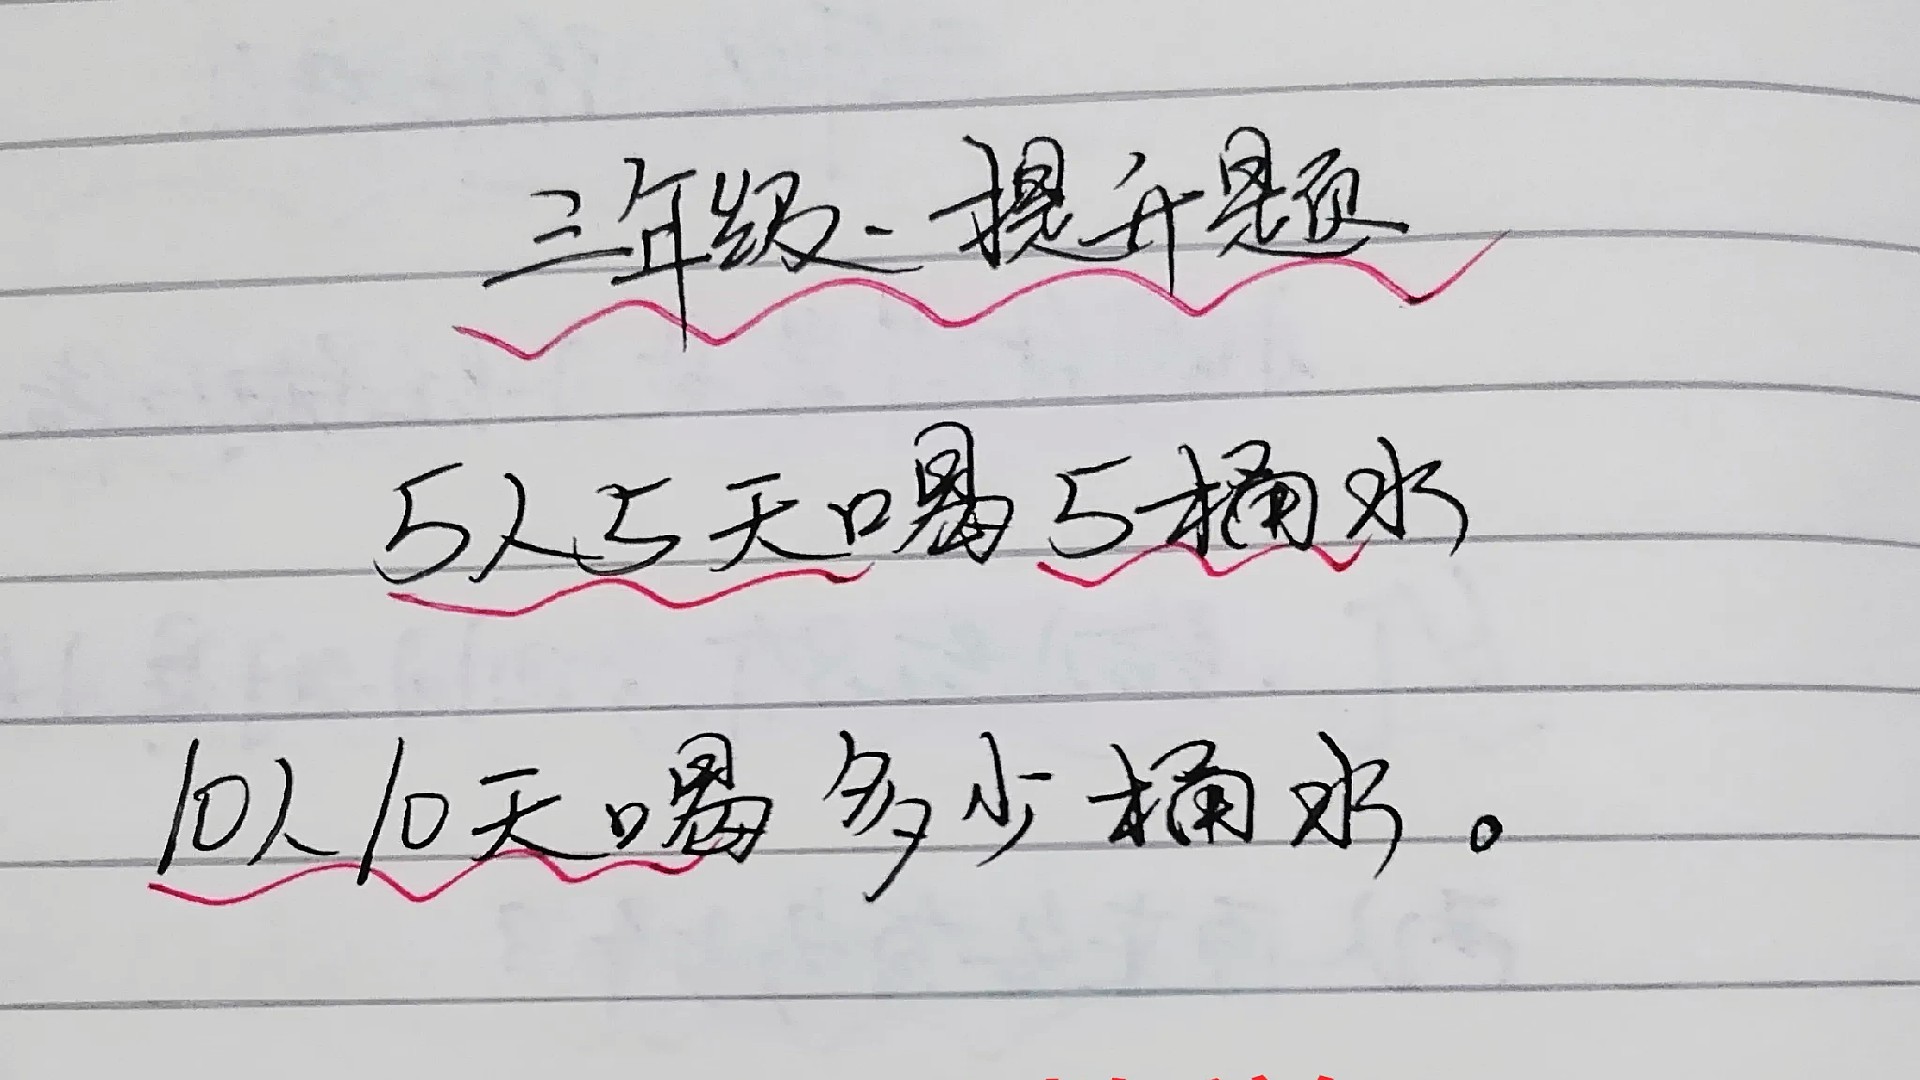 三年级-提升题
5人5天喝5桶水
10人10天喝多少桶水。